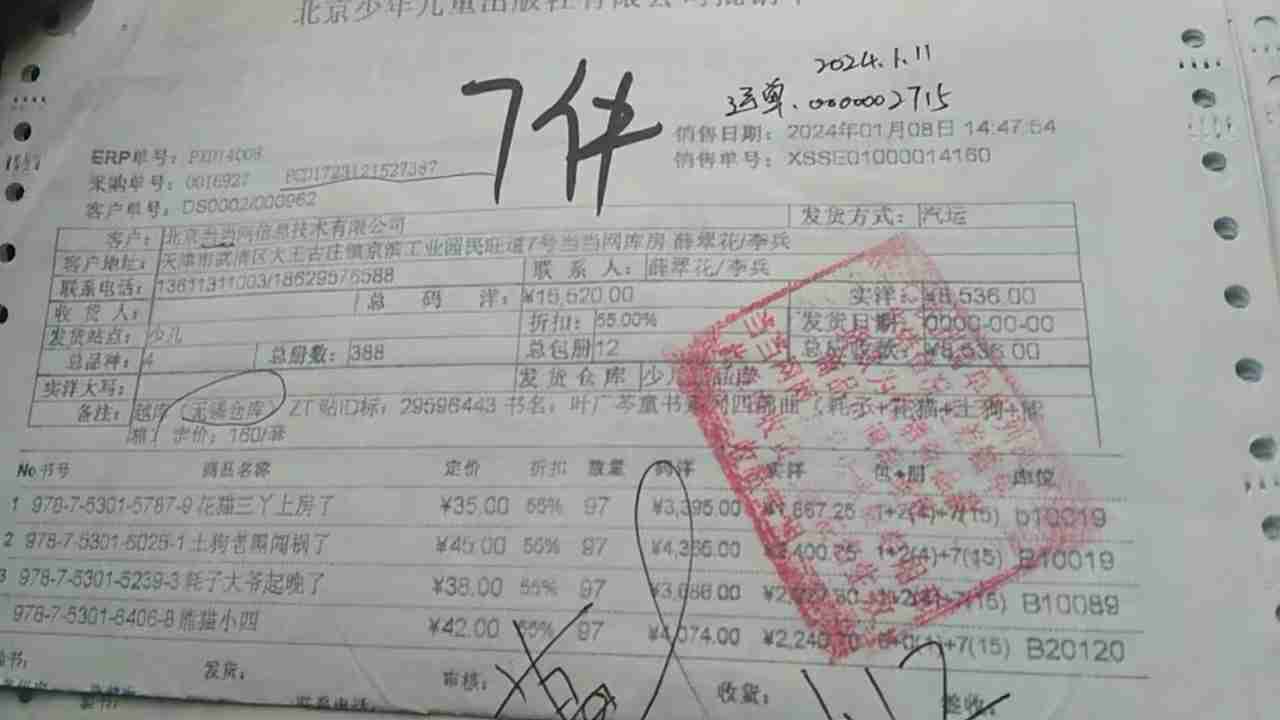 7件
2024.1.11
运单.000002715
销售日期：2024年01月08日 14:47:54
销售单号：XSSE01000014160
ERP单号：PXD14008
采购单号：0016927 PCD1723121527387
客户单号：DS0002/000962
客户：北京当当网信息技术有限公司 发货方式：汽运
客户地址：天津市武清区大王古庄镇京滨工业园民旺道7号当当网库房 薛翠花/李兵
联系电话：13611311003/18629576588 联系人：薛翠花/李兵
收货人： 总码洋：¥15,520.00 实洋：¥8,536.00
发货站点：少儿 折扣：55.00% 发货日期：0000-00-00
总品种：4 总册数：388 总包册12 ¥8,536.00
实洋大写： 发货仓库
备注：越库（无锡仓库）ZT贴ID标：29596443 书名：叶广芩童书系列四部曲（耗子+花猫+土狗+熊
猫）定价：160/套
No 书号 商品名称 定价 折扣 数量 码洋 实洋 包+册 库位
1 978-7-5301-5787-9 花猫三丫上房了 ¥35.00 55% 97 ¥3,395.00 ¥1,867.25 1+2(4)+7(15) b10019
2 978-7-5301-6025-1 土狗老黑闯祸了 ¥45.00 55% 97 ¥4,365.00 ¥2,400.75 1+2(4)+7(15) B10019
3 978-7-5301-5239-3 耗子大爷起晚了 ¥38.00 55% 97 ¥3,686.00 1+2(4)+7(15) B10089
978-7-5301-6406-8 熊猫小四 ¥42.00 55% 97 ¥4,074.00 +7(15) B20120
发货： 审核： 收货： 签收：